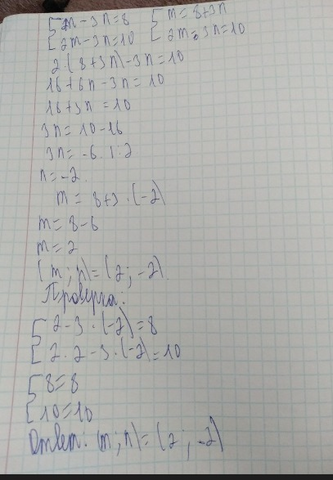 {m-3n=8 {m=8+3n
{2m-3n=10 {2m-3n=10
2(8+3n)-3n=10
16+6n-3n=10
16+3n=10
3n=10-16
3n=-6
n=-2
m=8+3·(-2)
m=8-6
m=2
(m;n)=(2;-2)
Проверка:
{2-3·(-2)=8
{2·2-3·(-2)=10
{8=8
{10=10
Ответ: (m;n)=(2;-2)